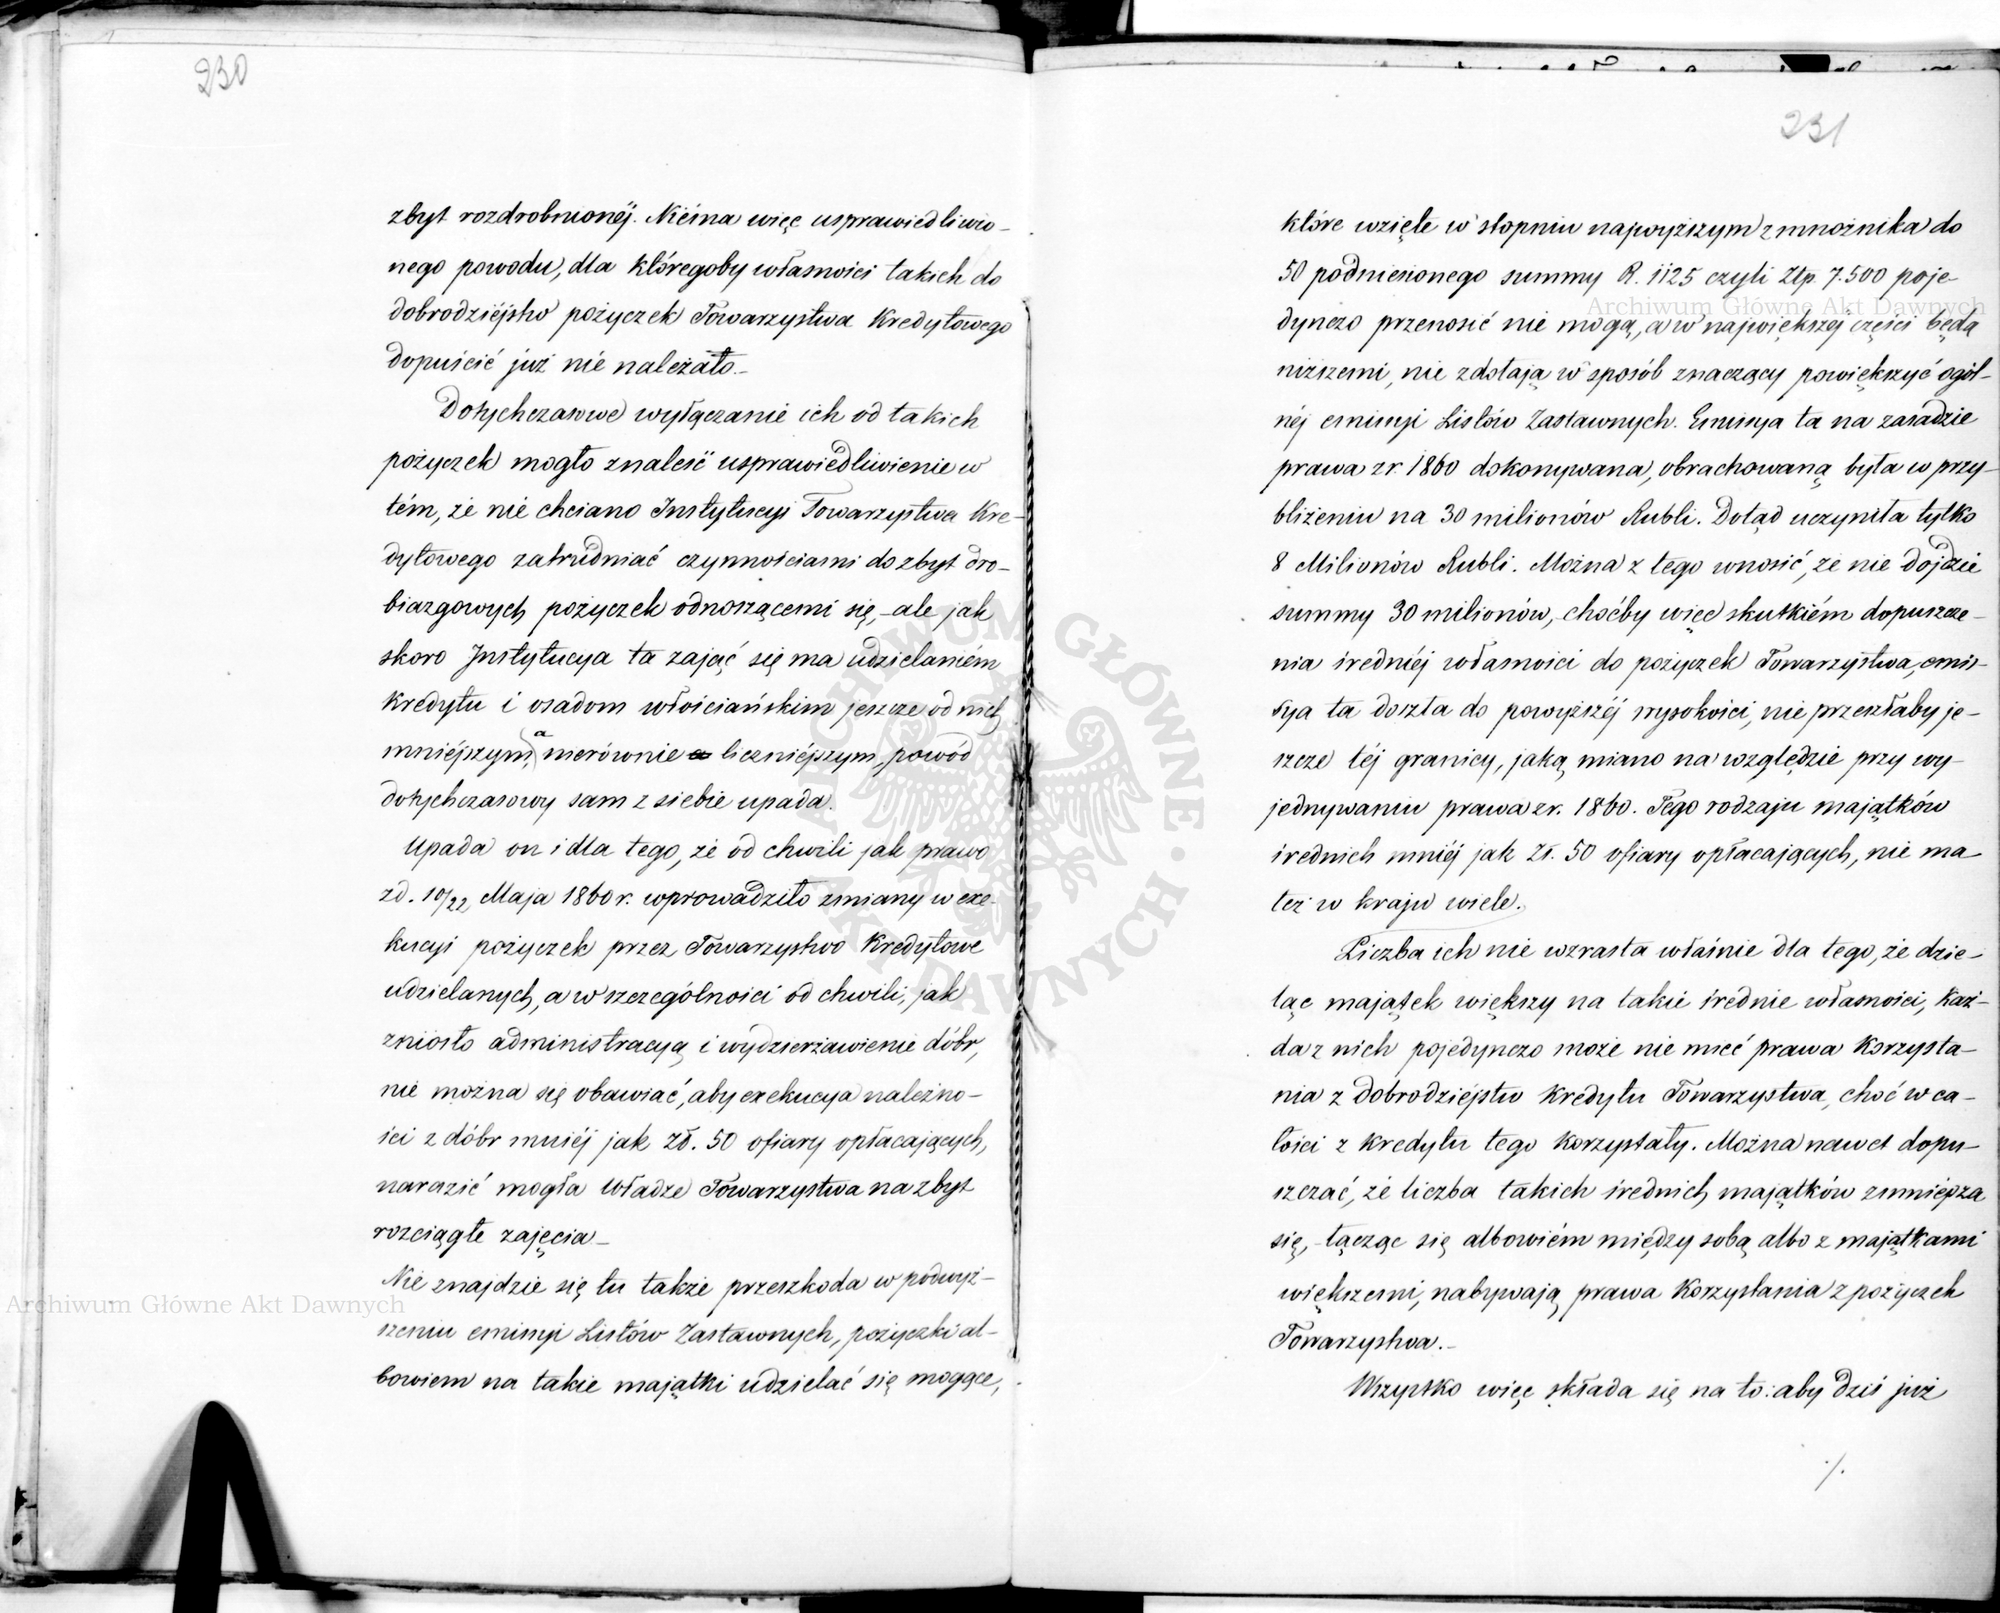 230
zbyt rozdrobnionéj. Niéma więc usprawiedliwio-
nego powodu, dla któregoby własności takich do
dobrodziéjstw pożyczek Towarzystwa Kredytowego
dopuścić już nié należało.-
Dotychczasowe wyłączanie ich od takich
pożyczek mogło znaleść usprawiedliwienie w
tém, że nié chciano Instytucyi Towarzystwa Kre-
dytowego zatrudniać czynnościami do zbyt dro-
biazgowych pożyczek odnoszącemi się,- ale jak
skoro Instytucya ta zająć się ma udzielaniém
kredytu i osadom włościańskim jeszcze od nich
mniéjszym, a nierównie liczniéjszym, powód
dotychczasowy sam z siebie upada.
Upada on i dla tego, że od chwili jak prawo
z d. 10/22 Maja 1860 r. wprowadziło zmiany w exe-
kucyi pożyczek przez Towarzystwo Kredytowe
udzielanych, a w szczególności od chwili, jak
zniosło administracyą i wydzierżawienie dóbr,
nie można się obawiać, aby exekucya należno-
ści z dóbr mniéj jak Zł. 50 ofiary opłacających,
narazić mogła Władze Towarzystwa na zbyt
rozciągłe zajęcia-
Nié znajdzie się tu także przeszkoda w podwyż-
szeniu emissyi Listów Zastawnych, pożyczki al-
bowiem na takie majątki udzielać się mogące,
231
które wzięte w stopniu najwyższym z mnożnika do
50 podniesionego summy R. 1125 czyli Złp. 7.500 poje-
dynczo przenosić nie mogą, a w największéj części będą
niższemi, nie zdołają w sposób znaczący powiększyć ogól-
néj emissyi Listów Zastawnych. Emissya ta na zasadzie
prawa z r. 1860 dokonywana, obrachowaną była w przy-
bliżeniu na 30 milionów Rubli. Dotąd uczyniła tylko
8 Milionów Rubli. Można z tego wnosić, że nie dójdzie
summy 30 milionów, choćby więc skutkiém dopuszcze-
nia średniéj własności do pożyczek Towarzystwa, emis-
sya ta doszła do powyższéj wysokości, nie przeszłaby je-
szcze téj granicy, jaką miano na względzie przy wy-
jednywaniu prawa z r. 1860. Tego rodzaju majątków
średnich mniéj jak Zł. 50 ofiary opłacających, nie ma
też w kraju wiele.
Liczba ich nie wzrasta właśnie dla tego, że dzie-
ląc majątek większy na takie średnie własności, każ-
da z nich pojedynczo może nie mieć prawa korzysta-
nia z dobrodziéjstw kredytu Towarzystwa, choć w ca-
łości z kredytu tego korzystały. Można nawet dopu-
szczać, że liczba takich średnich majątków zmniéjsza
się,- łącząc się albowiém między sobą albo z majątkami
większemi, nabywają prawa korzystania z pożyczek
Towarzystwa.-
Wszystko więc składa się na to: aby dziś już
./.
Archiwum Główne Akt Dawnych
Archiwum Główne Akt Dawnych
ARCHIWUM GŁÓWNE • AKT DAWNYCH •